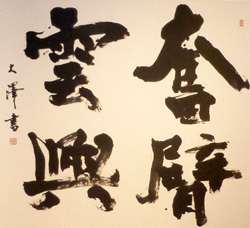 奮臂
雲興
大澤書